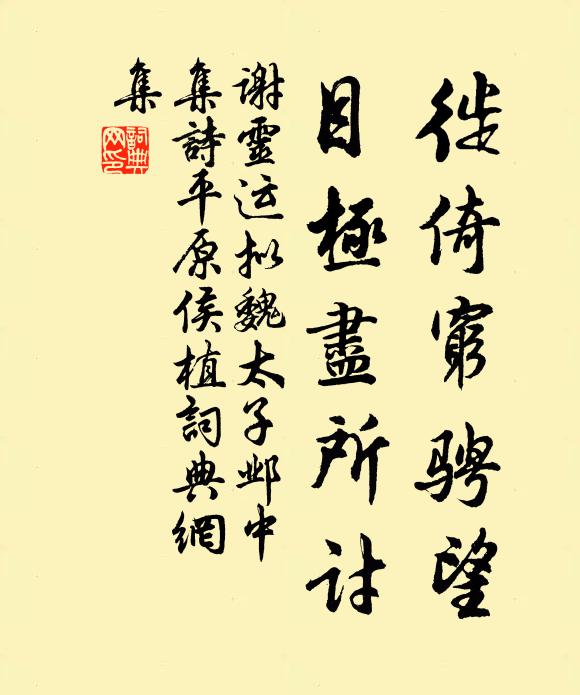 徙倚窮騁望
目極盡所討
謝靈运拟魏太子邺中
集詩平原侯植詞典網
集
詞典網印